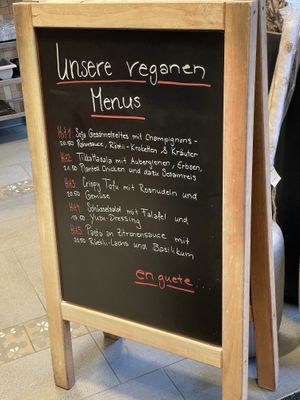 Unsere veganen
Menus
Hit 1: Soja Geschnetzeltes mit Champignons-
20.50 Rahmsauce, Rösti-Kroketten & Kräuter
Hit 2: Tikka Masala mit Auberginen, Erbsen,
21.50 Planted Chicken und dazu Sesamreis
Hit 3: Crispy Tofu mit Reisnudeln und
20.50 Gemüse
Hit 4: Schüsselsalat mit Falafel und
19.50 Yuzu-Dressing
Hit 5: Pasta an Zitronensauce mit
Rüebli-Lachs und Basilikum
en guete....